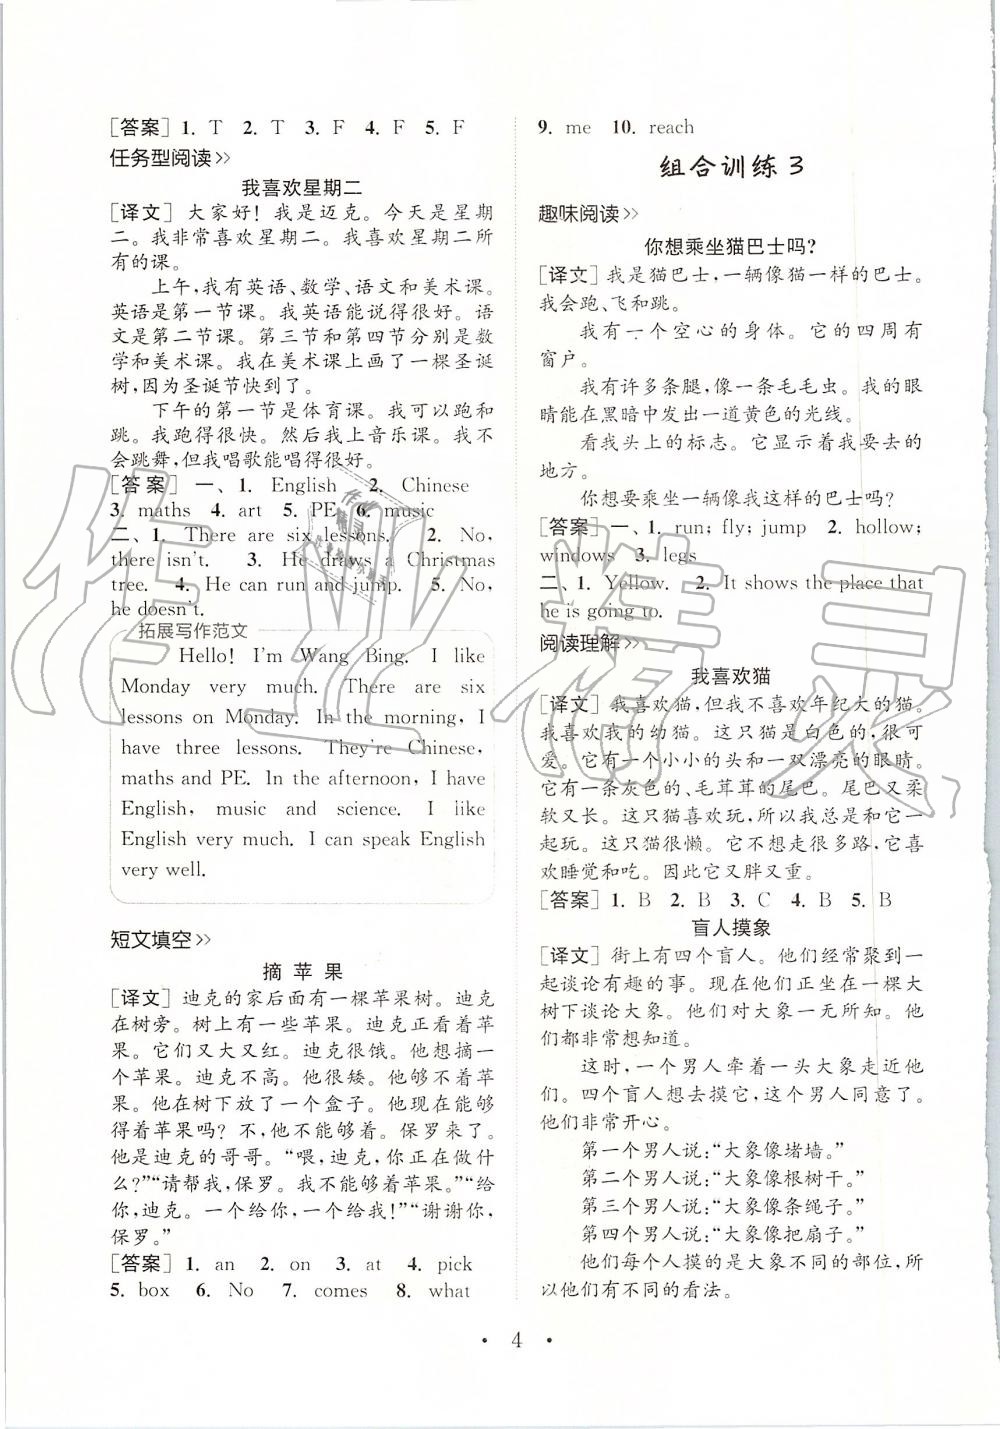 [答案] 1. T 2. T 3. F 4. F 5. F
任务型阅读>>
我喜欢星期二
[译文] 大家好！我是迈克。今天是星期
二。我非常喜欢星期二。我喜欢星期二所
有的课。
上午，我有英语、数学、语文和美术课。
英语是第一节课。我英语能说得很好。语
文是第二节课。第三节和第四节分别是数
学和美术课。我在美术课上画了一棵圣诞
树，因为圣诞节快到了。
下午的第一节是体育课。我可以跑和
跳。我跑得很快。然后我上音乐课。我不
会跳舞，但我唱歌能唱得很好。
[答案] 一、1. English 2. Chinese
3. maths 4. art 5. PE 6. music
二、1. There are six lessons. 2. No,
there isn't. 3. He draws a Christmas
tree. 4. He can run and jump. 5. No,
he doesn't.
拓展写作范文
Hello! I'm Wang Bing. I like
Monday very much. There are six
lessons on Monday. In the morning, I
have three lessons. They're Chinese,
maths and PE. In the afternoon, I have
English, music and science. I like
English very much. I can speak English
very well.
短文填空>>
摘苹果
[译文] 迪克的家后面有一棵苹果树。迪克
在树旁。树上有一些苹果。迪克正看着苹
果。它们又大又红。迪克很饿。他想摘一
个苹果。迪克不高。他很矮。他够不着苹
果。他在树下放了一个盒子。他现在能够
得着苹果吗？不，他不能够着。保罗来了。
他是迪克的哥哥。“喂，迪克，你正在做什
么？”“请帮我，保罗。我不能够着苹果。”“给
你，迪克。一个给你，一个给我！”“谢谢你，
保罗。”
[答案] 1. an 2. on 3. at 4. pick
5. box 6. No 7. comes 8. what
9. me 10. reach
组合训练3
趣味阅读>>
你想乘坐猫巴士吗？
[译文] 我是猫巴士，一辆像猫一样的巴士。
我会跑、飞和跳。
我有一个空心的身体。它的四周有
窗户。
我有许多条腿，像一条毛毛虫。我的眼
睛能在黑暗中发出一道黄色的光线。
看我头上的标志。它显示着我要去的
地方。
你想要乘坐一辆像我这样的巴士吗？
[答案] 一、1. run; fly; jump 2. hollow;
windows 3. legs
二、1. Yellow. 2. It shows the place that
he is going to.
阅读理解>>
我喜欢猫
[译文] 我喜欢猫，但我不喜欢年纪大的猫。
我喜欢我的幼猫。这只猫是白色的，很可
爱。它有一个小小的头和一双漂亮的眼睛。
它有一条灰色的、毛茸茸的尾巴。尾巴又柔
软又长。这只猫喜欢玩，所以我总是和它一
起玩。这只猫很懒。它不想走很多路，它喜
欢睡觉和吃。因此它又胖又重。
[答案] 1. B 2. B 3. C 4. B 5. B
盲人摸象
[译文] 街上有四个盲人。他们经常聚到一
起谈论有趣的事。现在他们正坐在一棵大
树下谈论大象。他们对大象一无所知。他
们都非常想知道。
这时，一个男人牵着一头大象走近他
们。四个盲人想去摸它，这个男人同意了。
他们非常开心。
第一个男人说：“大象像堵墙。”
第二个男人说：“大象像根树干。”
第三个男人说：“大象像条绳子。”
第四个男人说：“大象像把扇子。”
他们每个人摸的是大象不同的部位，所
以他们有不同的看法。
· 4 ·
作业精灵